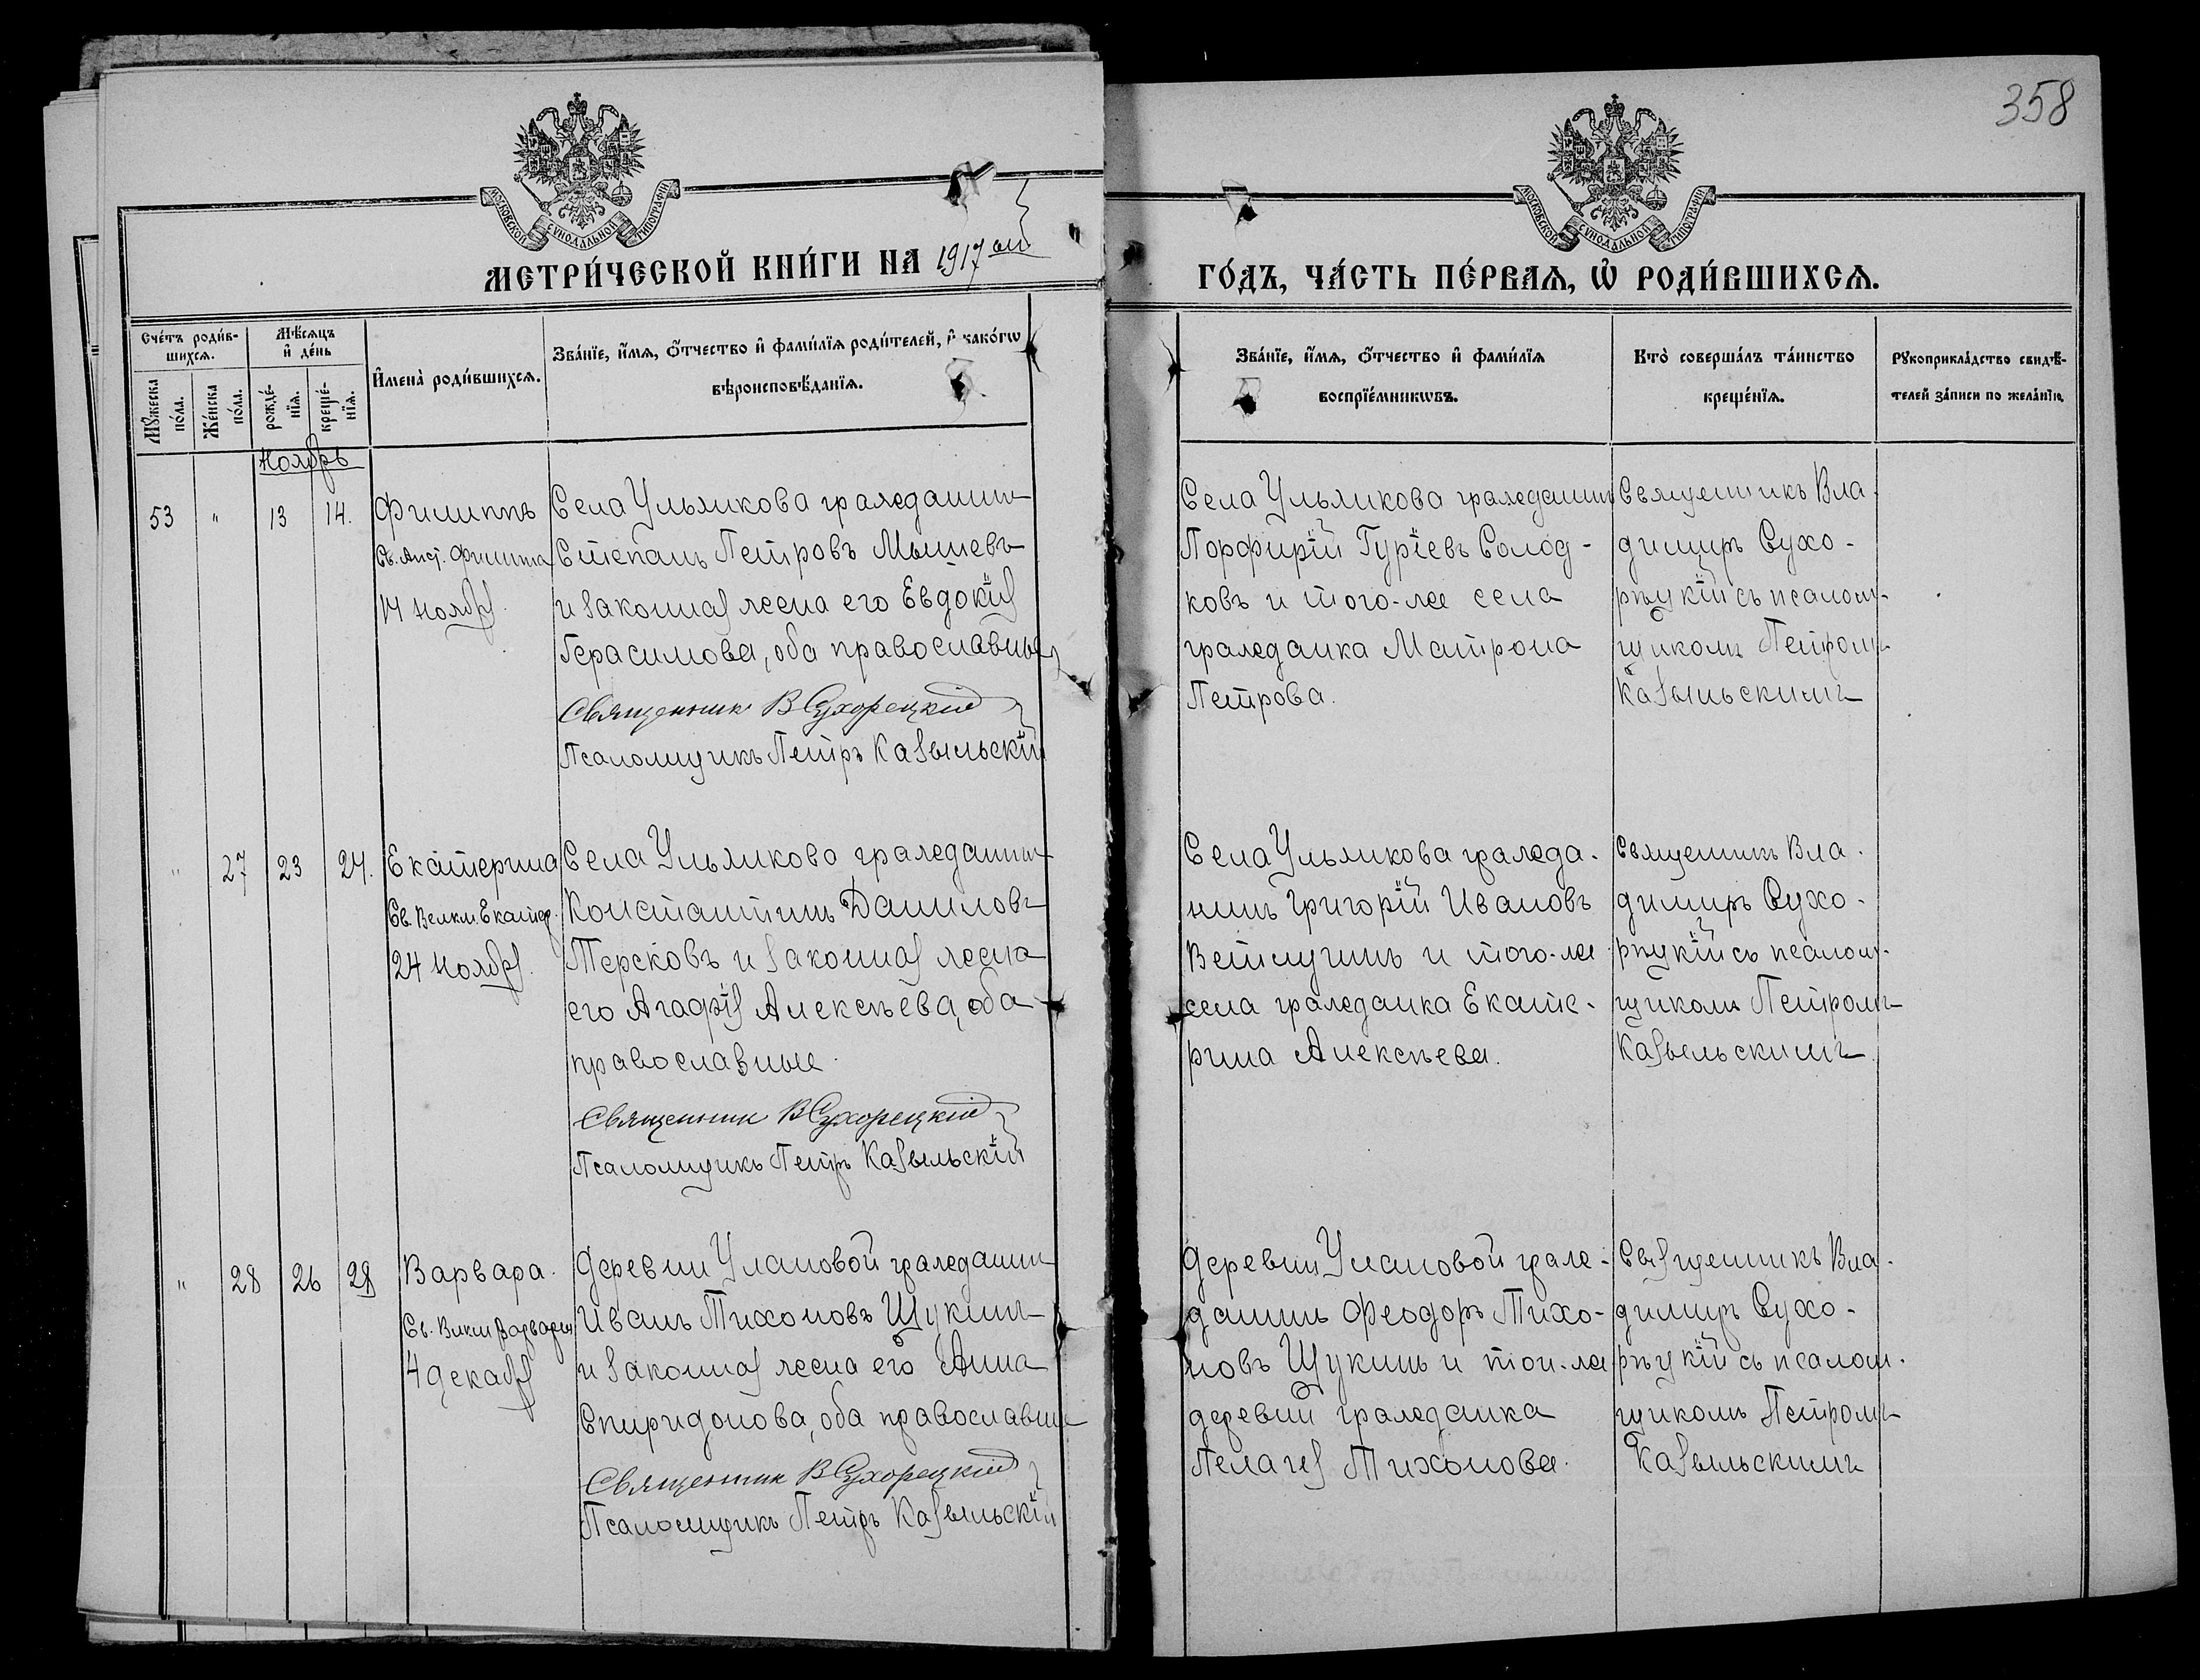 358
МОСКОВСКОЙ СѴНОДАЛЬНОЙ ТИПОГРАФІИ
МОСКОВСКОЙ СѴНОДАЛЬНОЙ ТИПОГРАФІИ
МЕТРИ́ЧЕСКОЙ КНИ́ГИ НА 1917 ый
ГО́ДЪ, ЧА́СТЬ ПЕ́РВАѦ, Ѡ҆ РОДИ́ВШИХСѦ.
Сче́тъ роди́в-
шихсѧ.
Мꙋ́жеска
по́ла.
Же́нска
по́ла.
Мѣ́сѧцъ
и҆ де́нь
рожде́-
нїѧ.
креще́-
нїѧ.
И҆мена̀ роди́вшихсѧ.
Зва́нїе, и҆́мѧ, ѻ҆́тчество и҆ фами́лїѧ роди́телей, и҆ како́гѡ
вѣроисповѣ́данїѧ.
Зва́нїе, и҆́мѧ, ѻ҆́тчество и҆ фами́лїѧ
воспрїе́мникѡвъ.
Кто̀ соверша́лъ та́инство
креще́нїѧ.
Рꙋкоприкла́дство свидѣ́-
телей за́писи по жела́нїю.
Ноябрь
53 " 13 14.
Филиппъ
Св. Апст. Филиппа
14 Ноября.
Села Ульянкова гражданинъ
Степанъ Петровъ Мышевъ
и законная жена его Евдокія
Герасимова, оба православные
Священник В Сухорецкій
Псаломщикъ Петръ Казыльскій
Села Ульянкова гражданинъ
Порфирій Гуріевъ Солод-
ковъ и того-же села
гражданка Матрона
Петрова.
Священникъ Вла-
димиръ Сухо-
рѣцкій съ псалом-
щикомъ Петромъ
Казыльскимъ
" 27 23 24.
Екатерина
Св. Велкм. Екатер.
24 Ноября.
Села Ульянкова гражданинъ
Константинъ Даниловъ
Терсковъ и законная жена
его Агафія Алексѣева, оба
православные.
Священник В Сухорецкій
Псаломщикъ Петръ Казыльскій
Села Ульянкова гражда-
нинъ Григорій Ивановъ
Ветлугинъ и того-же
села гражданка Екате-
рина Алексѣева.
Священникъ Вла-
димиръ Сухо-
рѣцкій съ псалом-
щикомъ Петромъ
Казыльскимъ.
" 28 26 28
Варвара.
Св. Влкм Варвары
4 декабря
Деревни Улановой гражданинъ
Иванъ Тихоновъ Щукинъ
и законная жена его Анна
Спиридонова, оба православн
Священник В Сухорецкій
Псаломщикъ Петръ Казыльскій
Деревни Улановой граж-
данинъ Феодоръ Тихо-
новъ Щукинъ и той-же
деревни гражданка
Пелагея Тихонова.
Священникъ Вла-
димиръ Сухо-
рѣцкій съ псалом-
щикомъ Петромъ
Казыльскимъ